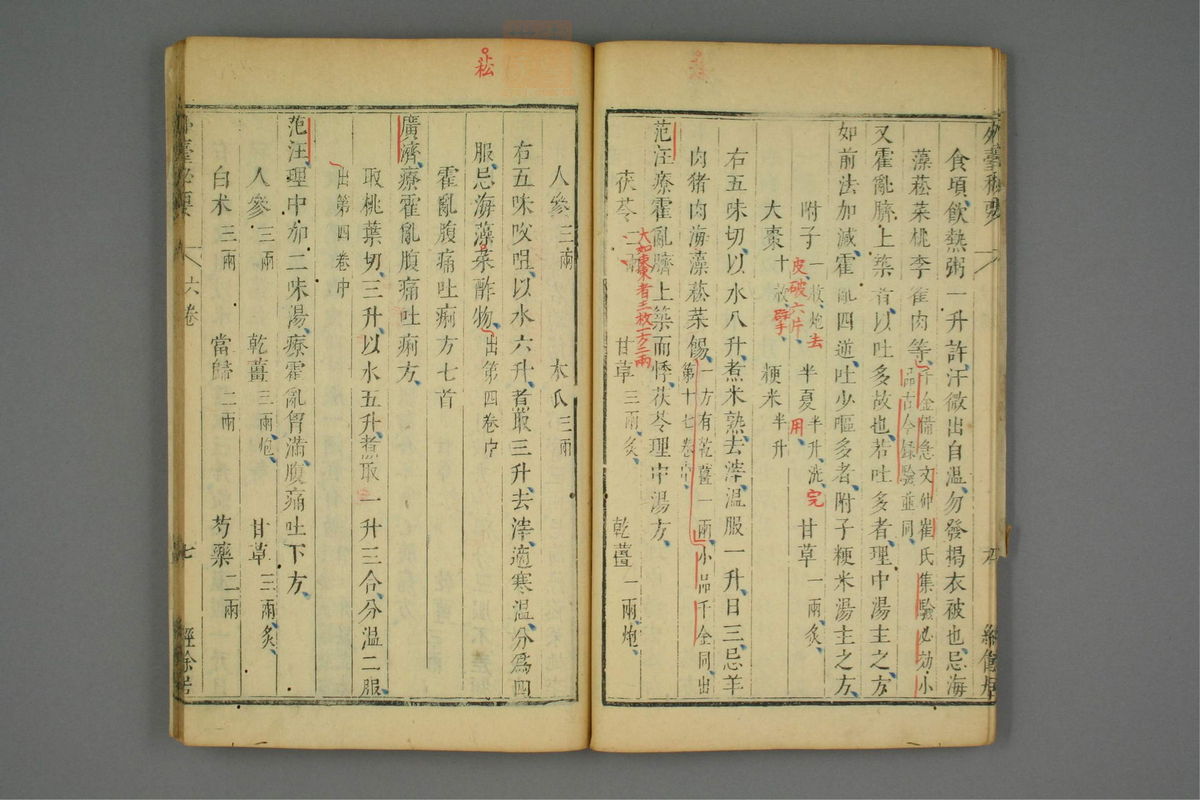 食頃飲熱粥一升許汗微出自温勿發揭衣被也忌海
藻菘菜桃李雀肉等千金備急文仲崔氏集驗必効小
品古今録驗並同
又霍亂臍上築者以吐多故也若吐多者理中湯主之方
如前法加減霍亂四逆吐少嘔多者附子粳米湯主之方
附子一枚炮去
皮破六片
半夏半升洗完
用
甘草一兩炙
大棗十枚擘
粳米半升
右五味切以水八升煮米熟去滓温服一升日三忌羊
肉猪肉海藻菘菜餳一方有乾薑一兩小品千金同出
第十七卷中
范汪療霍亂臍上築而悸茯苓理中湯方
茯苓二兩
甘草三兩炙
乾薑一兩炮
大如棗者三枚一方二兩
人參三兩
木瓜三兩
右五味㕮咀以水六升煮取三升去滓適寒温分爲四
服忌海藻菜酢物出第四卷中
菘
霍亂腹痛吐痢方七首
廣濟療霍亂腹痛吐痢方
取桃葉切三升以水五升煮取一升三合分温二服
出第四卷中
范汪理中加二味湯療霍亂胷滿腹痛吐下方
人參三兩
乾薑三兩炮
甘草三兩炙
白术三兩
當歸二兩
芍藥二兩
外臺祕要
六卷
七
經餘居